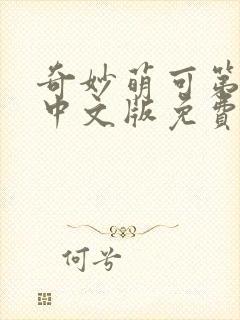 奇妙萌可第
中文版免费
何兮